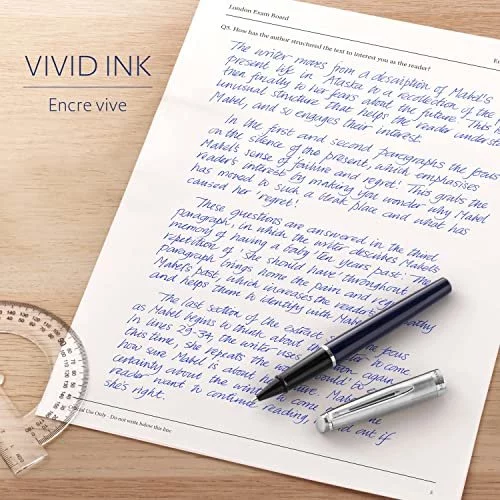 VIVID INK
Encre vive
London Exam Board
Q5. How has the author structured the text to interest you as the reader?
The writer moves from a description of Mabel's
present life in Alaska to a recollection of the
then finally to her fears about the future. This
unusual structure that helps the reader understand
Mabel, and so engages their interest.
In the first and second paragraphs the focus
on the silence of the present, which emphasises
Mabel's sense of failure and regret! This grabs the
reader's interest by making you wonder why Mabel
has moved to such a bleak place and what has
caused her 'regret'.
These questions are answered in the third
paragraph, in which the writer describes Mabel's
memory of having a baby 'ten years past'. The
repetition of 'she should have' throughout
paragraph brings home the pain and
Mabel's past, which increases the reader's
and helps them to identify with Mabel
The last section of the extract focus
as Mabel begins to think about to come
In lines 29-34, the writer uses again
this time, she repeats the would be
how sure Mabel is about
certainty about the to come
reader want to continue reading, to find out if
she's right.
Use Only - Do not write below this line